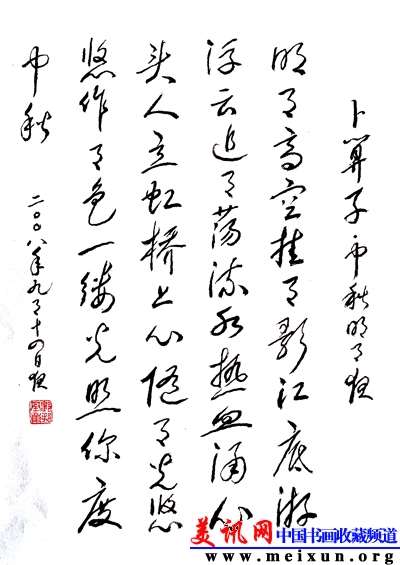 卜算子中秋明月夜
明月高空挂月影江底游
浮云追月荡流水热血涌心
头人立虹桥上心随月光悠
悠作月色一缕光照你度
中秋
二〇〇八年九月十四日夜
美讯网中国书画收藏频道
www.meixun.org